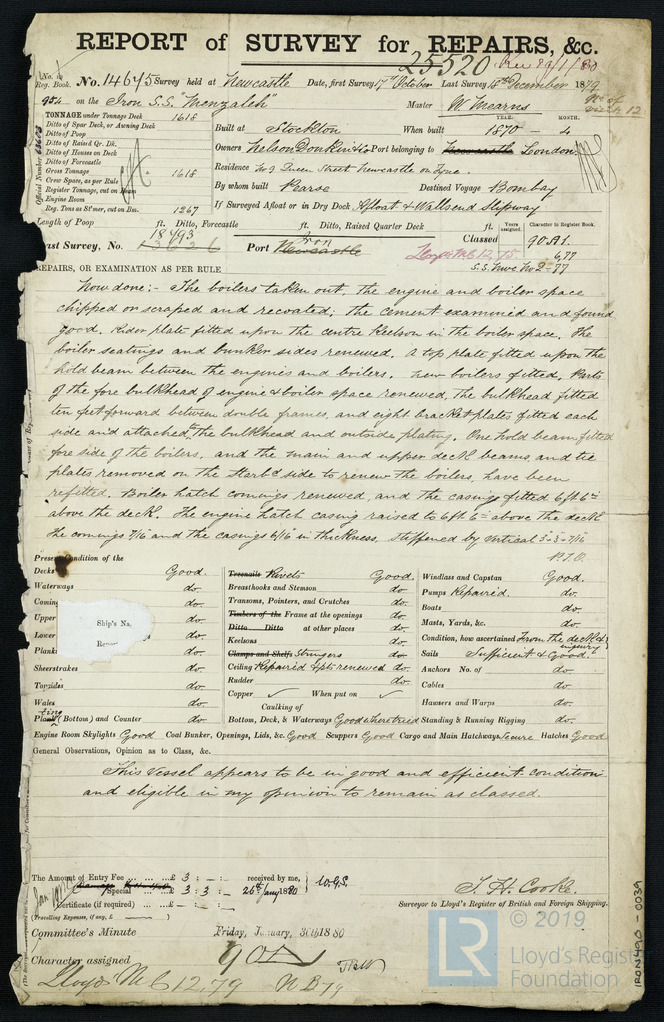 REPORT of SURVEY for REPAIRS, &c.
25520 Rec 29/1/80
No. in Reg. Book. No. 14675 Survey held at Newcastle Date, first Survey 17th October Last Survey 15th December 1879
954 on the Iron S.S. "Menzaleh" Master W. Mearns
TONNAGE under Tonnage Deck 1618
Ditto of Spar Deck, or Awning Deck
Ditto of Poop
Ditto of Raised Qr. Dk.
Ditto of Houses on Deck
Ditto of Forecastle
Gross Tonnage 1618
Crew Space, as per Rule
Register Tonnage, cut on Beam
Engine Room
Reg. Tons as St'mer, cut on Bm. 1267
Official Number
YEAR. MONTH.
Built at Stockton When built 1870 - 4
Owners Nelson Donkin & Co Port belonging to Newcastle London
Residence No 9 Queen Street Newcastle on Tyne.
By whom built Pearse Destined Voyage Bombay
If Surveyed Afloat or in Dry Dock Afloat & Wallsend Slipway
Length of Poop ft. Ditto, Forecastle ft. Ditto, Raised Quarter Deck ft.
Years assigned. Character to Register Book.
18493
Last Survey, No. 13626 Port Newcastle Iron Classed 90A1.
Lloyds MC 12.75 6,77
S.S. Nwc No 2-77
REPAIRS, OR EXAMINATION AS PER RULE
Now done:- The boilers taken out, the engine and boiler space
chipped or scraped and recoated; the cement examined and found
good. Rider plate fitted upon the centre Keelson in the boiler space. The
boiler seatings and bunker sides renewed. A top plate fitted upon the
hold beam between the engines and boilers. New boilers fitted. Parts
of the fore bulkhead of engine & boiler space renewed, the bulkhead fitted
ten feet forward between double frames, and eight bracket plates fitted each
side and attached to the bulkhead and outside plating. One hold beam fitted
fore side of the boilers, and the main and upper deck beams, and tie
plates removed on the Starbd side to renew the boilers, have been
refitted. Boiler hatch comings renewed, and the casing fitted 6 ft 6 in
above the deck. The engine hatch casing raised to 6 ft. 6 in above the deck
the comings 7/16 and the casings 6/16 in thickness, stiffened by vertical 3 - 3 - 7/16
P.T.O.
Present Condition of the
Decks Good.
Waterways do.
Coming do.
Upper do.
Lower do.
Plank do.
Sheerstrakes do.
Topsides do.
Wales do.
Plank ing (Bottom) and Counter do.
Ship's Na.
Report
Treenails Rivets Good.
Breasthooks and Stemson do.
Transoms, Pointers, and Crutches do.
Timbers of the Frame at the openings do.
Ditto Ditto at other places do.
Keelsons do.
Clamps and Shelfs Stringers do.
Ceiling Repaired & pts renewed do.
Rudder do.
Copper ✓ When put on ✓
Caulking of
Bottom, Deck, & Waterways Good where tried
Windlass and Capstan Good.
Pumps Repaired. do.
Boats do.
Masts, Yards, &c. do.
Condition, how ascertained From the deck & inquiry
Sails Sufficient & Good.
Anchors No. of do.
Cables do.
Hawsers and Warps do.
Standing & Running Rigging do.
Engine Room Skylights Good Coal Bunker, Openings, Lids, &c. Good Scuppers Good Cargo and Main Hatchways Secure Hatches Good
General Observations, Opinion as to Class, &c.
This Vessel appears to be in good and efficient condition
and eligible in my opinion to remain as classed
The Amount of Entry Fee £ 3 : - : - received by me,
Special £ 3 : 3 : - 26th Jany 1880 W.G.S.
Certificate (if required) £ - : - : -
(Travelling Expenses, if any, £ )
T. H. Cooke.
Surveyor to Lloyd's Register of British and Foreign Shipping.
Committee's Minute Friday, January, 30th 1880
Character assigned 90A1
Lloyds MC 12,79 NB79
IRON490-0039
LR
© 2019
Lloyd's Register
Foundation